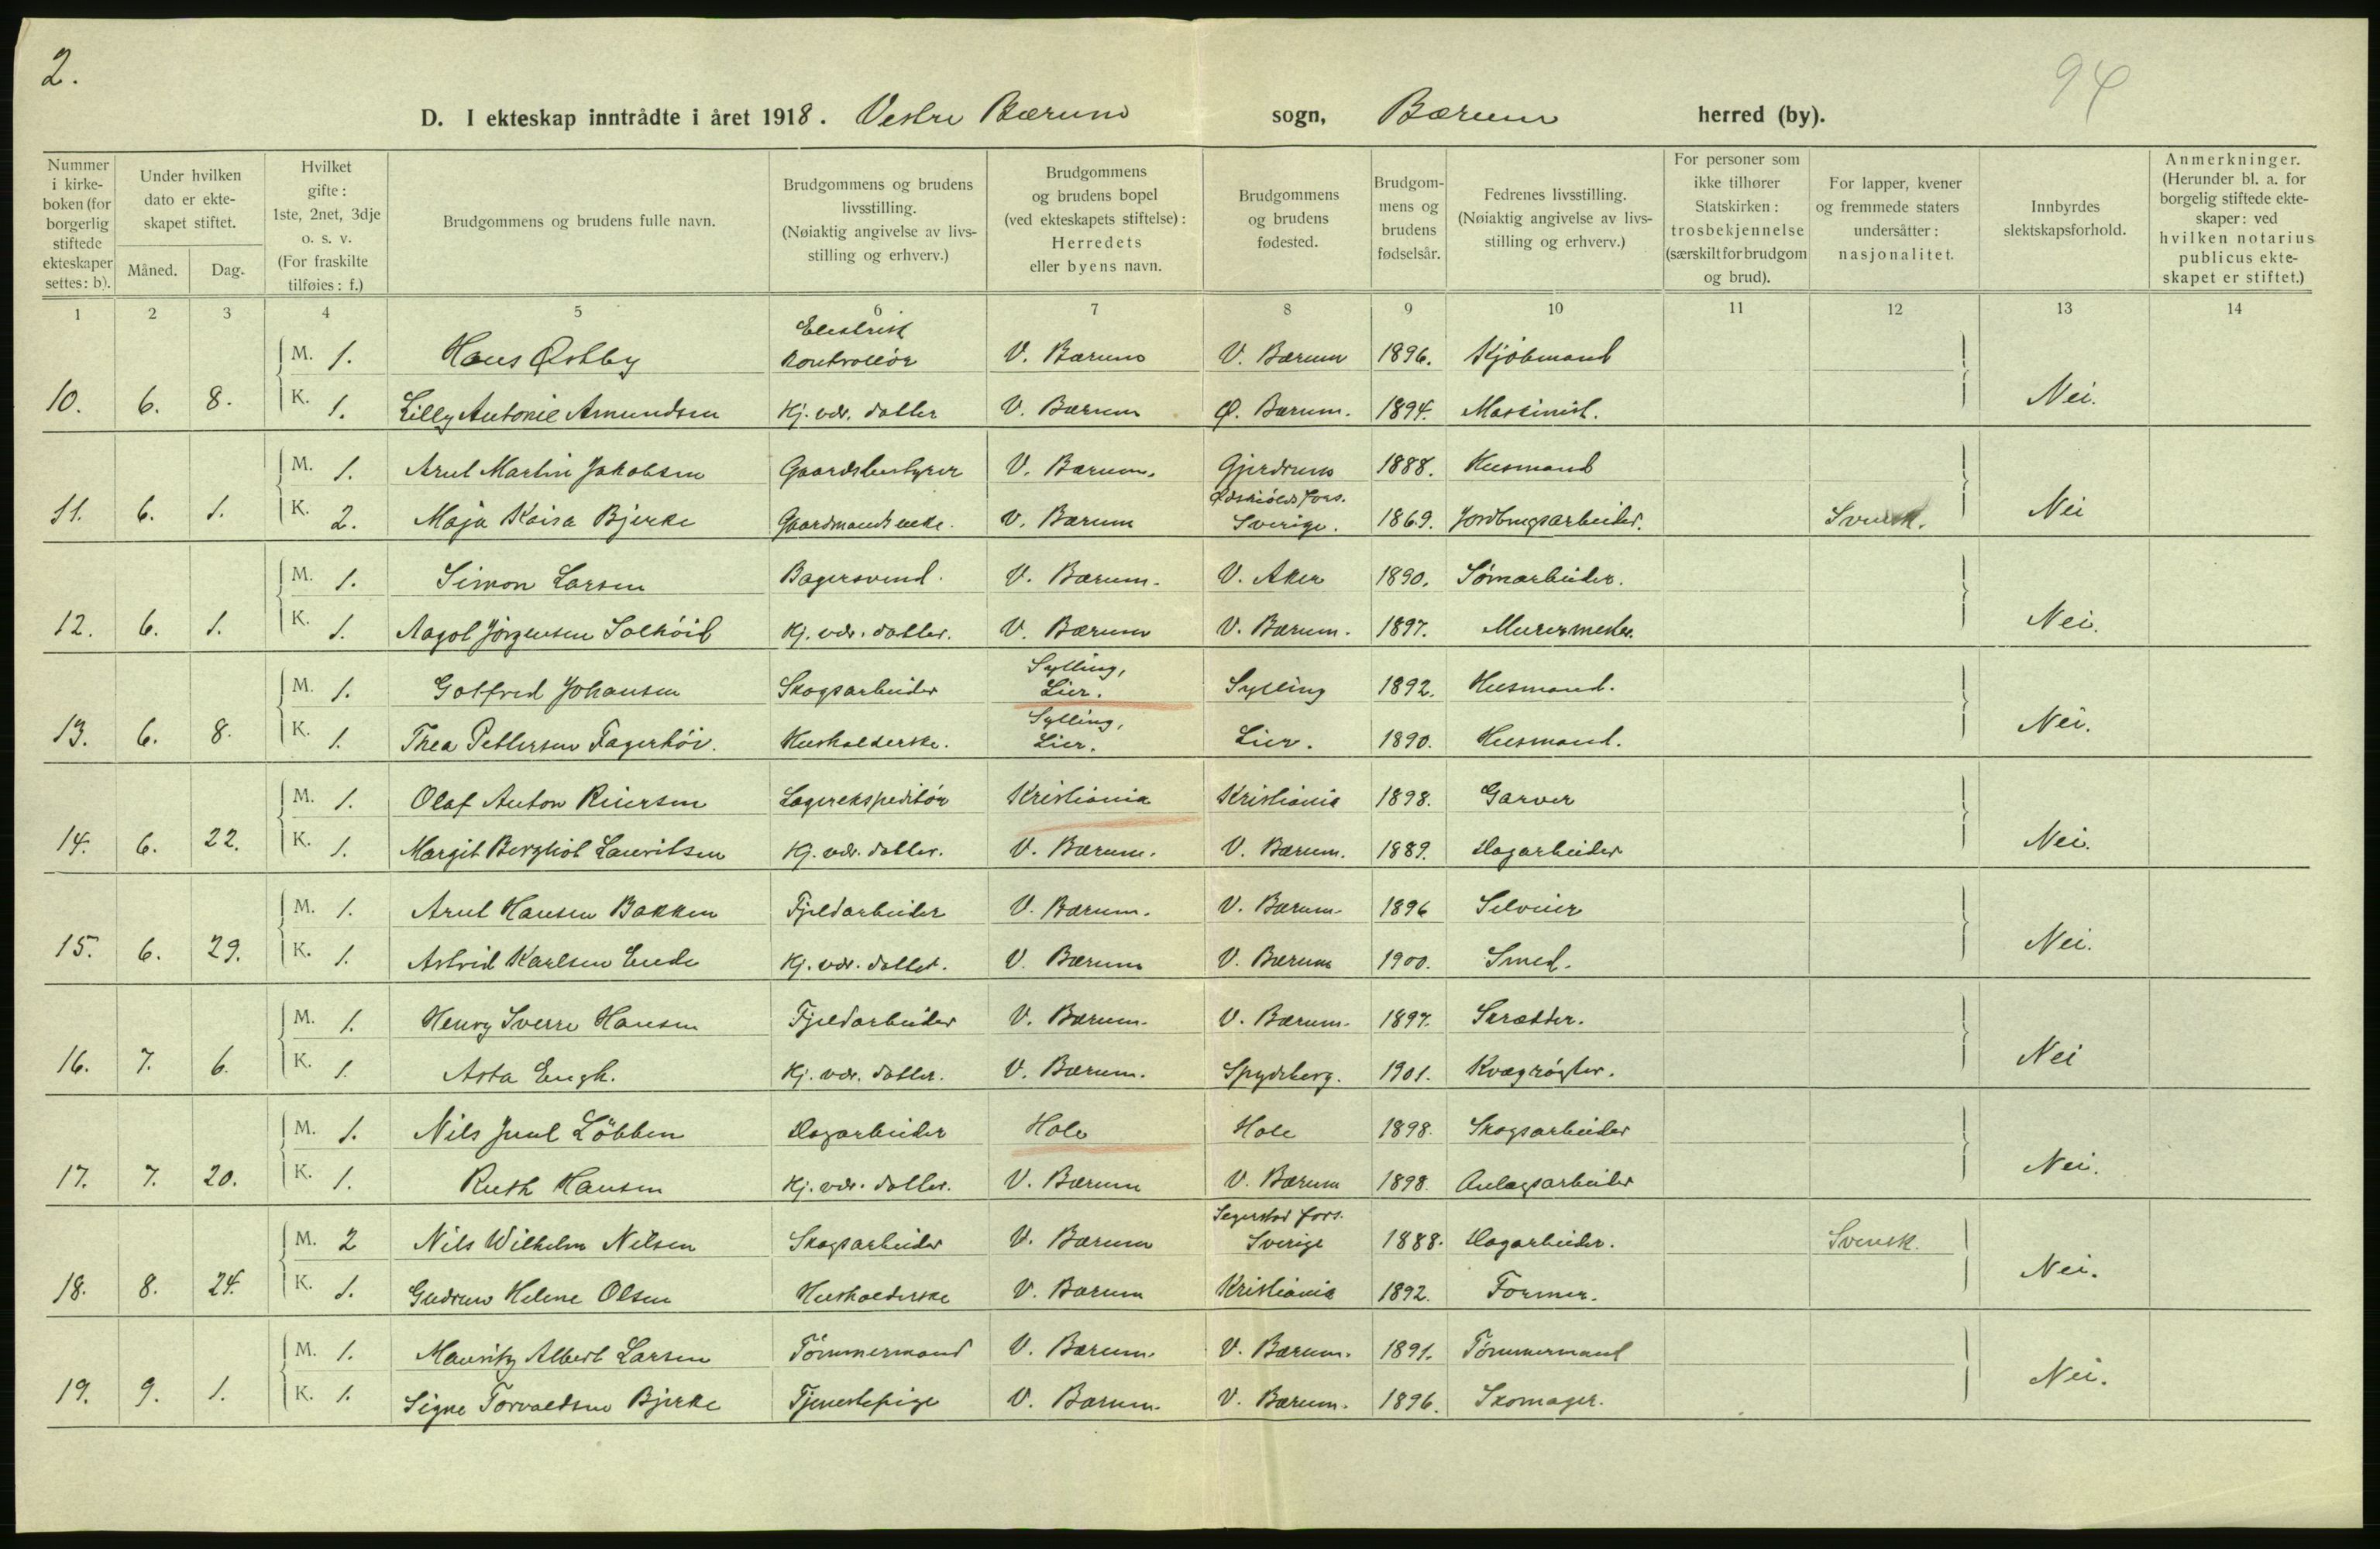 2.
94
D. I ekteskap inntrådte i året 1918. Vestre Bærum sogn, Bærum herred (by).
Nummer i kirkeboken (for borgerlig stiftede ekteskaper settes: b).
Under hvilken dato er ekteskapet stiftet.
Måned. Dag.
Hvilket gifte: 1ste, 2net, 3dje o. s. v. (For fraskilte tilføies: f.)
Brudgommens og brudens fulle navn.
Brudgommens og brudens livsstilling. (Nøiaktig angivelse av livsstilling og erhverv.)
Brudgommens og brudens bopel (ved ekteskapets stiftelse): Herredets eller byens navn.
Brudgommens og brudens fødested.
Brudgommens og brudens fødselsår.
Fedrenes livsstilling. (Nøiaktig angivelse av livsstilling og erhverv.)
For personer som ikke tilhører Statskirken: trosbekjennelse (særskilt for brudgom og brud).
For lapper, kvener og fremmede staters undersåtter: nasjonalitet.
Innbyrdes slektskapsforhold.
Anmerkninger. (Herunder bl. a. for borgelig stiftede ekteskaper: ved hvilken notarius publicus ekteskapet er stiftet.)
1 2 3 4 5 6 7 8 9 10 11 12 13 14
M. 1. Hans Østby Elektrisk kontrollör V. Bærum V. Bærum 1896. Kjöbmand
10. 6. 8. K. 1. Lilly Antonie Amundsen Kj. vær. datter V. Bærum Ø. Bærum. 1894. Maskinist. Nei.
M. 1. Arnt Martin Jakobsen Gaardsbestyrer V. Bærum. Gjerdrum 1888. Husmand
11. 6. 1. K. 2. Maja Kaisa Bjerke Gaardmandsenke. V. Bærum Ödskiölds fors. Sverige. 1869. Jordbrugsarbeider. Svensk. Nei
M. 1. Simon Larsen Bagersvend. V. Bærum. V. Aker 1890. Sömarbeider.
12. 6. 1. K. 1. Aagot Jörgensen Solhöid Kj. vær. datter. V. Bærum V. Bærum. 1897. Murermester. Nei.
M. 1. Gotfred Johansen Skogsarbeider Sylling, Lier. Sylling 1892. Husmand.
13. 6. 8. K. 1. Thea Pettersen Fagerhöi. Husholderske. Sylling, Lier. Lier. 1890. Husmand. Nei.
M. 1. Olaf Anton Reiersen Lagerekspeditör Kristiania Kristiania 1898. Garver
14. 6. 22. K. 1. Margit Bergliot Lauritsen Kj. vær. datter. V. Bærum. V. Bærum. 1889. Dagarbeider Nei.
M. 1. Arnt Hansen Bakken Fjeldarbeider V. Bærum. V. Bærum. 1896 Selveier
15. 6. 29. K. 1. Astrid Karlsen Ende Kj. vær. datter. V. Bærum V. Bærum 1900. Smed. Nei.
M. 1. Henry Sverre Hansen Fjeldarbeider V. Bærum. V. Bærum. 1897. Skrædder.
16. 7. 6. K. 1. Asta Engh. Kj. vær. datter. V. Bærum. Spydeberg. 1901. Kvægrögter. Nei
M. 1. Nils Juul Löbben Dagarbeider Hole Hole 1898. Skogsarbeider
17. 7. 20. K. 1. Ruth Hansen Kj. vær. datter. V. Bærum V. Bærum 1898. Anlægsarbeider Nei.
M. 2 Nils Wilhelm Nilsen Skogsarbeider V. Bærum Segerstad fors. Sverige 1888. Dagarbeider. Svensk.
18. 8. 24. K. 1. Gudrun Helene Olsen Husholderske V. Bærum Kristiania 1892. Former. Nei.
M. 1. Mauritz Albert Larsen Tömmermand V. Bærum. V. Bærum. 1891. Tömmermand
19. 9. 1. K. 1. Signe Torvaldsen Bjerke Tjenestepige V. Bærum. V. Bærum. 1896. Skomager. Nei.